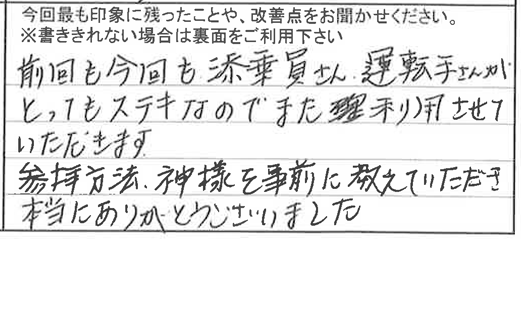 今回最も印象に残ったことや、改善点をお聞かせください。
※書ききれない場合は裏面をご利用下さい
前回も今回も添乗員さん、運転手さんが
とってもステキなのでまた利用させて
いただきます
参拝方法、神様を事前に教えていただき
本当にありがとうございました